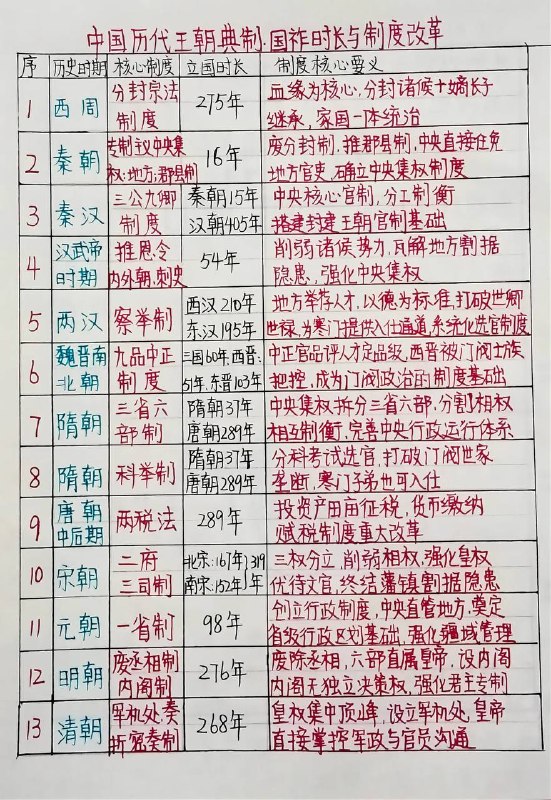 中国历代王朝典制·国祚时长与制度改革
序 历史时期 核心制度 立国时长 制度核心要义
1 西周 分封宗法制度 275年 血缘为核心,分封诸侯+嫡长子
继承,家国一体统治
2 秦朝 专制议中央集权:地方;郡县制 16年 废分封制、推郡县制,中央直接任免
地方官吏,确立中央集权制度
3 秦汉 三公九卿制度 秦朝15年 汉朝405年 中央核心官制,分工制衡
搭建封建王朝官制基础
4 汉武帝时期 推恩令 内外朝.刺史 54年 削弱诸侯势力,瓦解地方割据
隐患,强化中央集权
5 两汉 察举制 西汉210年 东汉195年 地方举荐人才,以德为标准,打破世卿
世禄,为寒门提供入仕通道,系统化选官制度
6 魏晋南北朝 九品中正制度 三国60年.西晋:51年、东晋103年 中正官品评人才定品级,西晋被门阀士族
把控,成为门阀政治的制度基础
7 隋朝 三省六部制 隋朝37年 唐朝289年 中央集权拆分三省六部,分割相权
相互制衡,完善中央行政运行体系
8 隋朝 科举制 隋朝37年 唐朝289年 分科考试选官,打破门阀世家
垄断,寒门子弟也可入仕
9 唐朝中后期 两税法 289年 按资产田亩征税,货币缴纳
赋税制度重大改革
10 宋朝 二府三司制 北宋:167年 南宋:152年 319年 三权分立,削弱相权,强化皇权
优待文官,终结藩镇割据隐患
11 元朝 一省制 98年 创立行政制度,中央直管地方,奠定
省级行政区划基础,强化疆域管理
12 明朝 废丞相制 内阁制 276年 废除丞相,六部直属皇帝,设内阁
内阁无独立决策权,强化君主专制
13 清朝 军机处、奏折密奏制 268年 皇权集中顶峰,设立军机处,皇帝
直接掌控军政与官员沟通